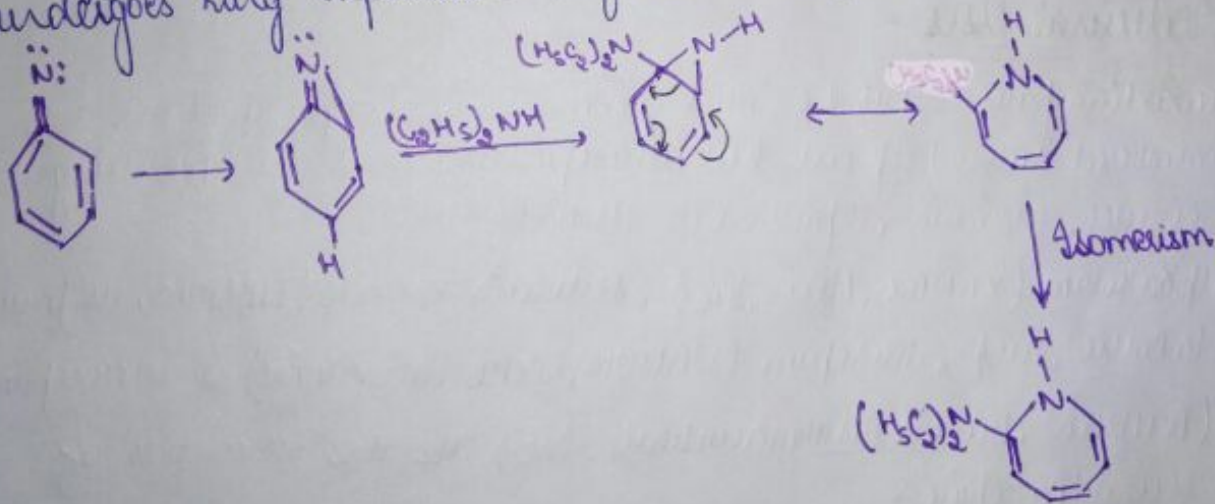 undergoes ring
N:
N
H
(C₂H₅)₂NH
(H₅C₂)₂N
N-H
H
N
Isomerism
H
N
(H₅C₂)₂N